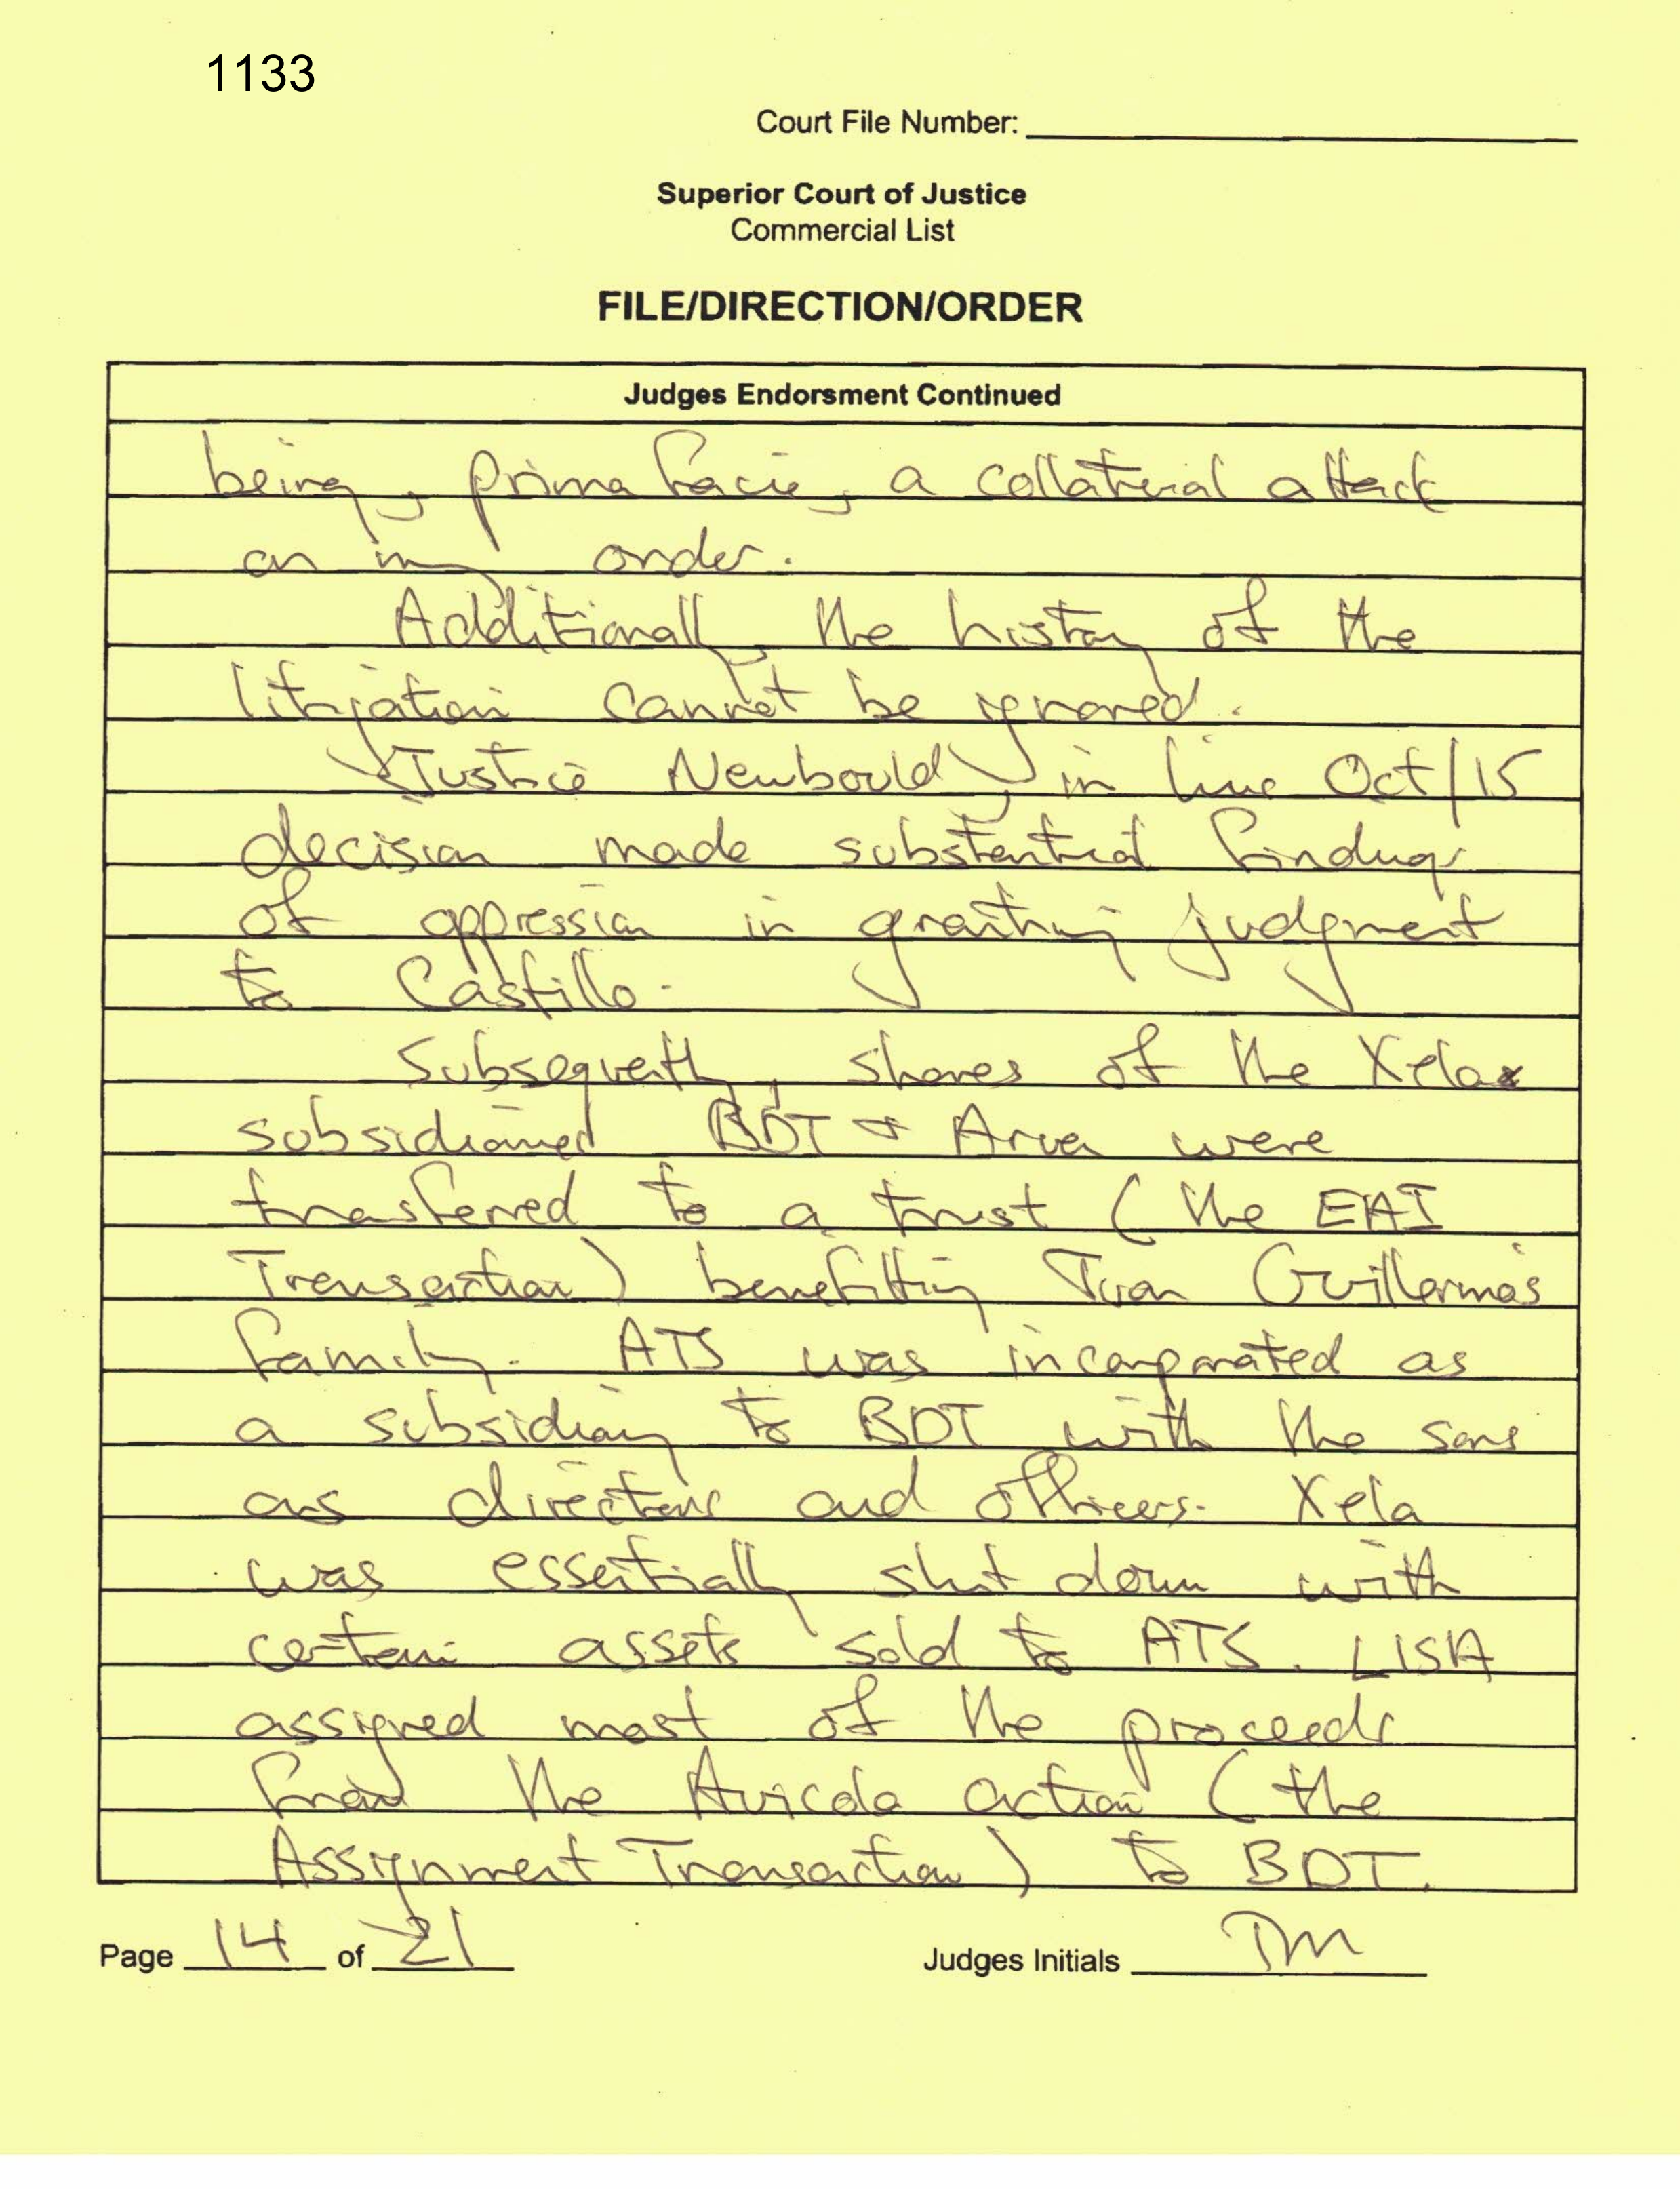 1133
Court File Number:
Superior Court of Justice
Commercial List
FILE/DIRECTION/ORDER
Judges Endorsment Continued
being, prima facie, a collateral attack
on my order.
Additionally, the history of the
litigation cannot be ignored.
Justice Newbould, in Oct/15
decision made substantial findings
of oppression in granting judgment
to Castillo.
Subsequently, shares of the Xela
BDT + Arven were
transferred to a trust (the EAI
Transaction) benefitting Juan Guillermo's
family. ATS was incorporated as
a subsidiary to BDT with the sons
as directors and officers. Xela
was essentially shut down with
certain assets sold to ATS. LISA
assigned most of the proceeds
from the Avicola action (the
Assignment Transaction) to BDT.
Page 14 of 21 Judges Initials